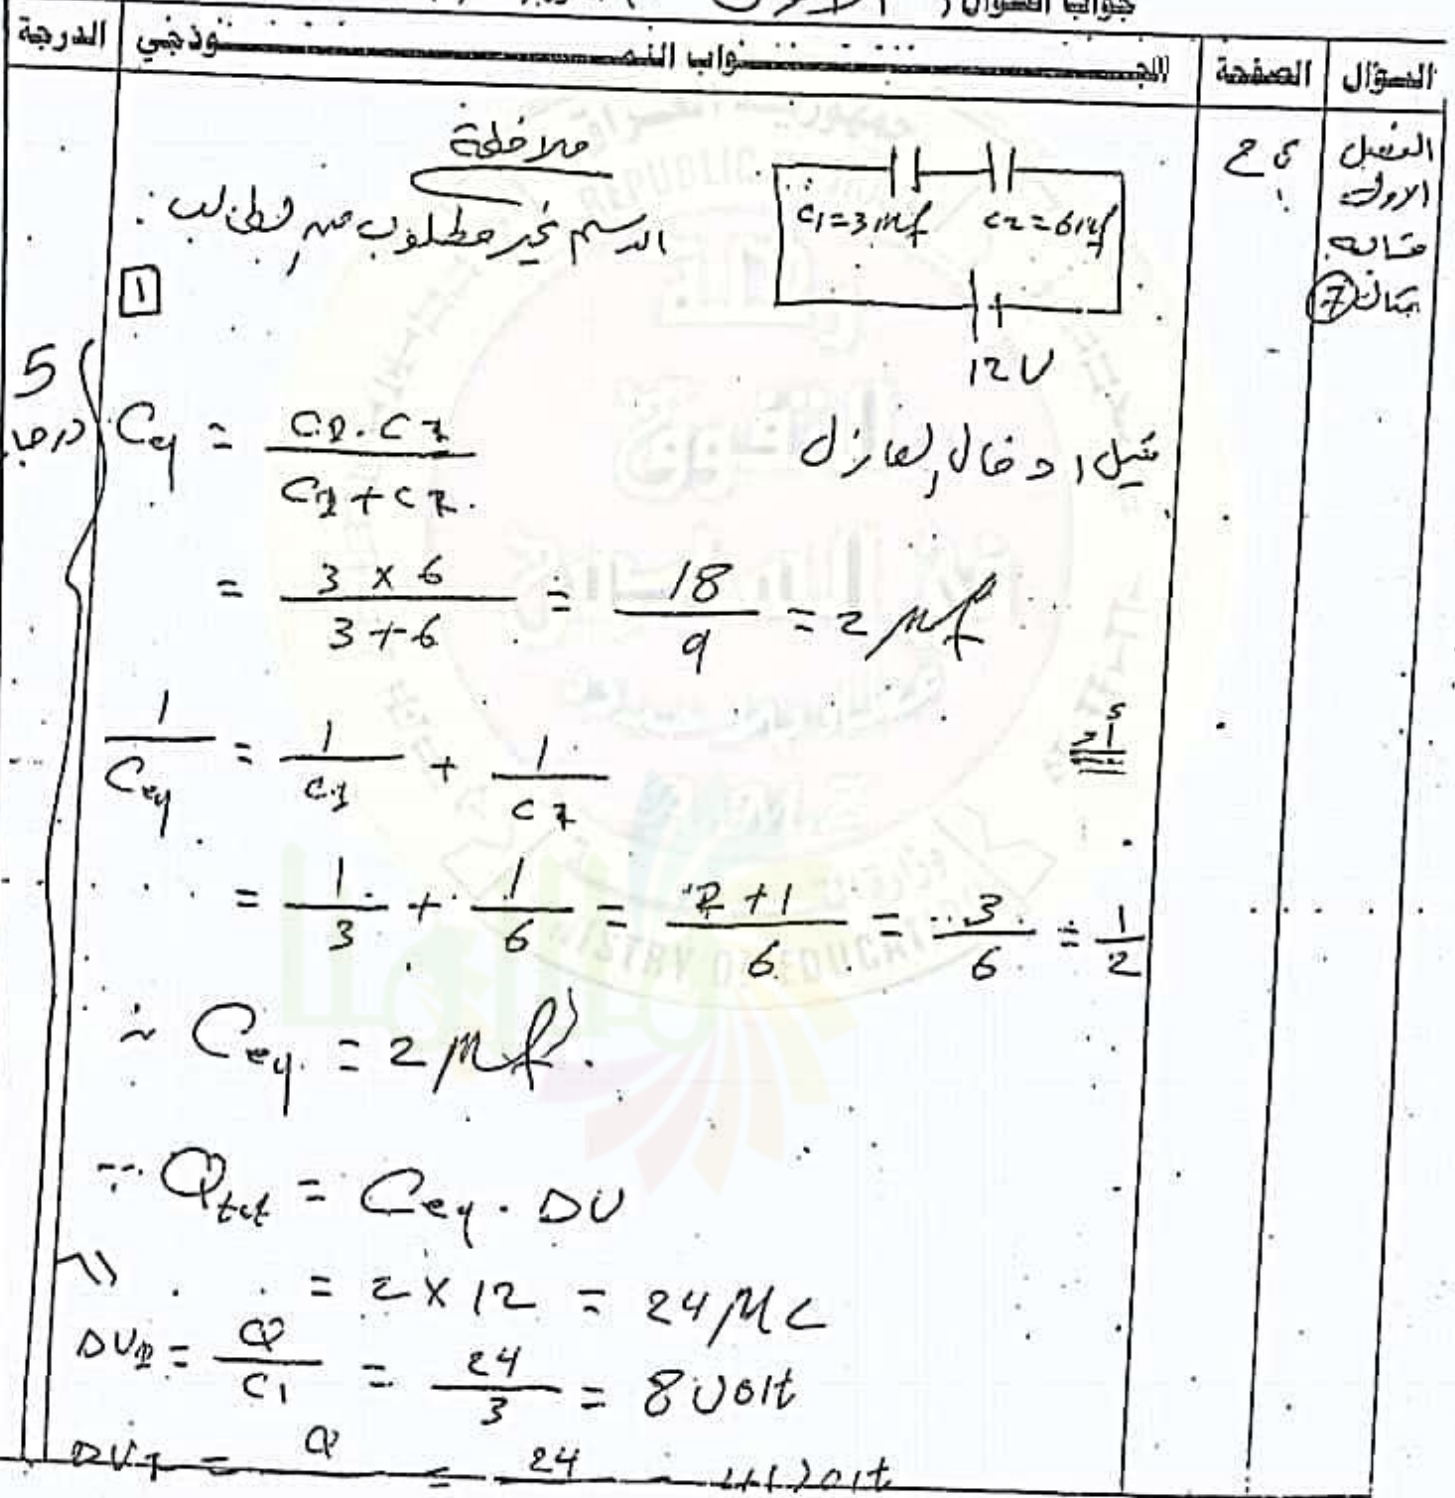 جواب السؤال ( الاول )
السؤال
الصفحة
الجـــواب النمـــوذجي
الدرجة
الفصل
الاول
مثال
7
ملاحظة
الرسم غير مطلوب من الطالب
C1=3μf C2=6μf
12V
1
5
قبل ادخال العازل
Ceq = C1.C2 / C1+C2
= 3 x 6 / 3+6 = 18 / 9 = 2 μf
1 / Ceq = 1 / C1 + 1 / C2
= 1 / 3 + 1 / 6 = 2+1 / 6 = 3 / 6 = 1 / 2
Ceq = 2 μf
Qtot = Ceq . ΔV
= 2 x 12 = 24 μC
ΔV1 = Q / C1 = 24 / 3 = 8 Volt
Q = 24
جمهورية العراق
REPUBLIC
التفوق
MINISTRY OF EDUCATION